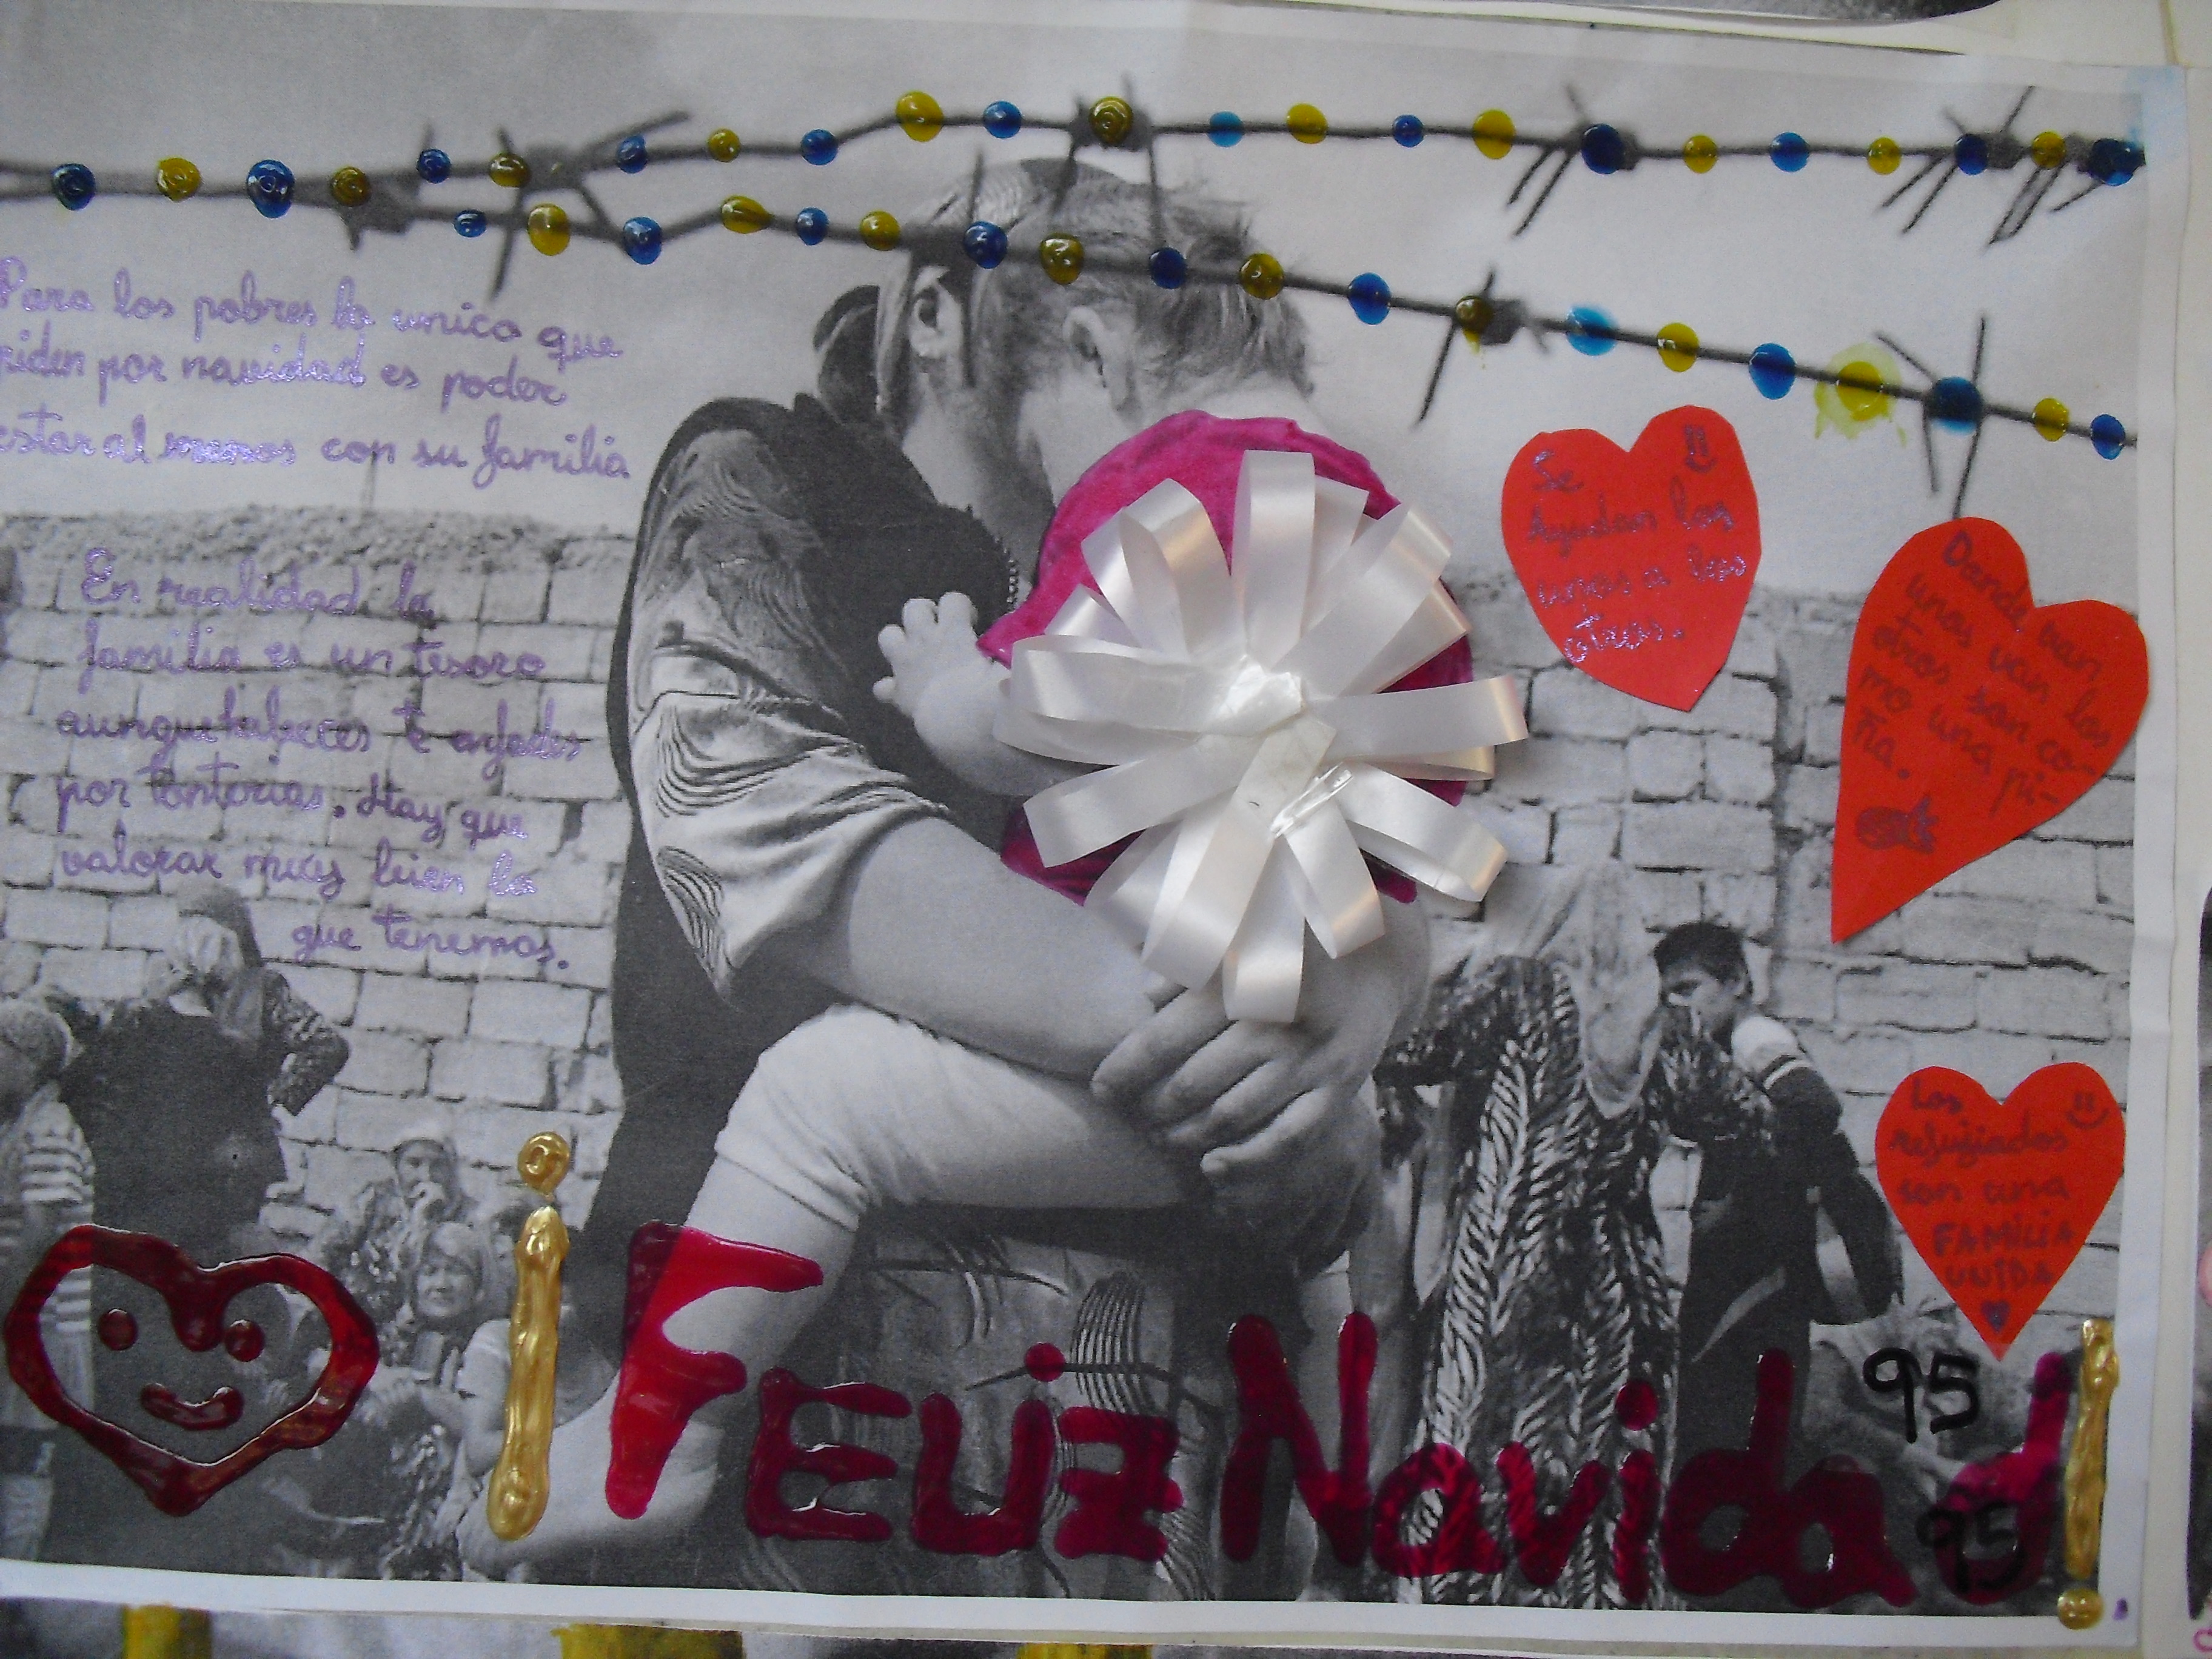 Para los pobres lo unico que
piden por navidad es poder
estar al menos con su familia
En realidad la
familia es un tesoro
aunque habeces te enfades
por tonterias. Hay que
valorar muy bien lo
que tenemos.
Se
Ayudan los
unos a los
otros.
Donde van
unos van los
otros son co-
mo una pi-
ña.
Los
refugiados
son una
FAMILIA
UNIDA
¡FELIZ Navidad!
95
95